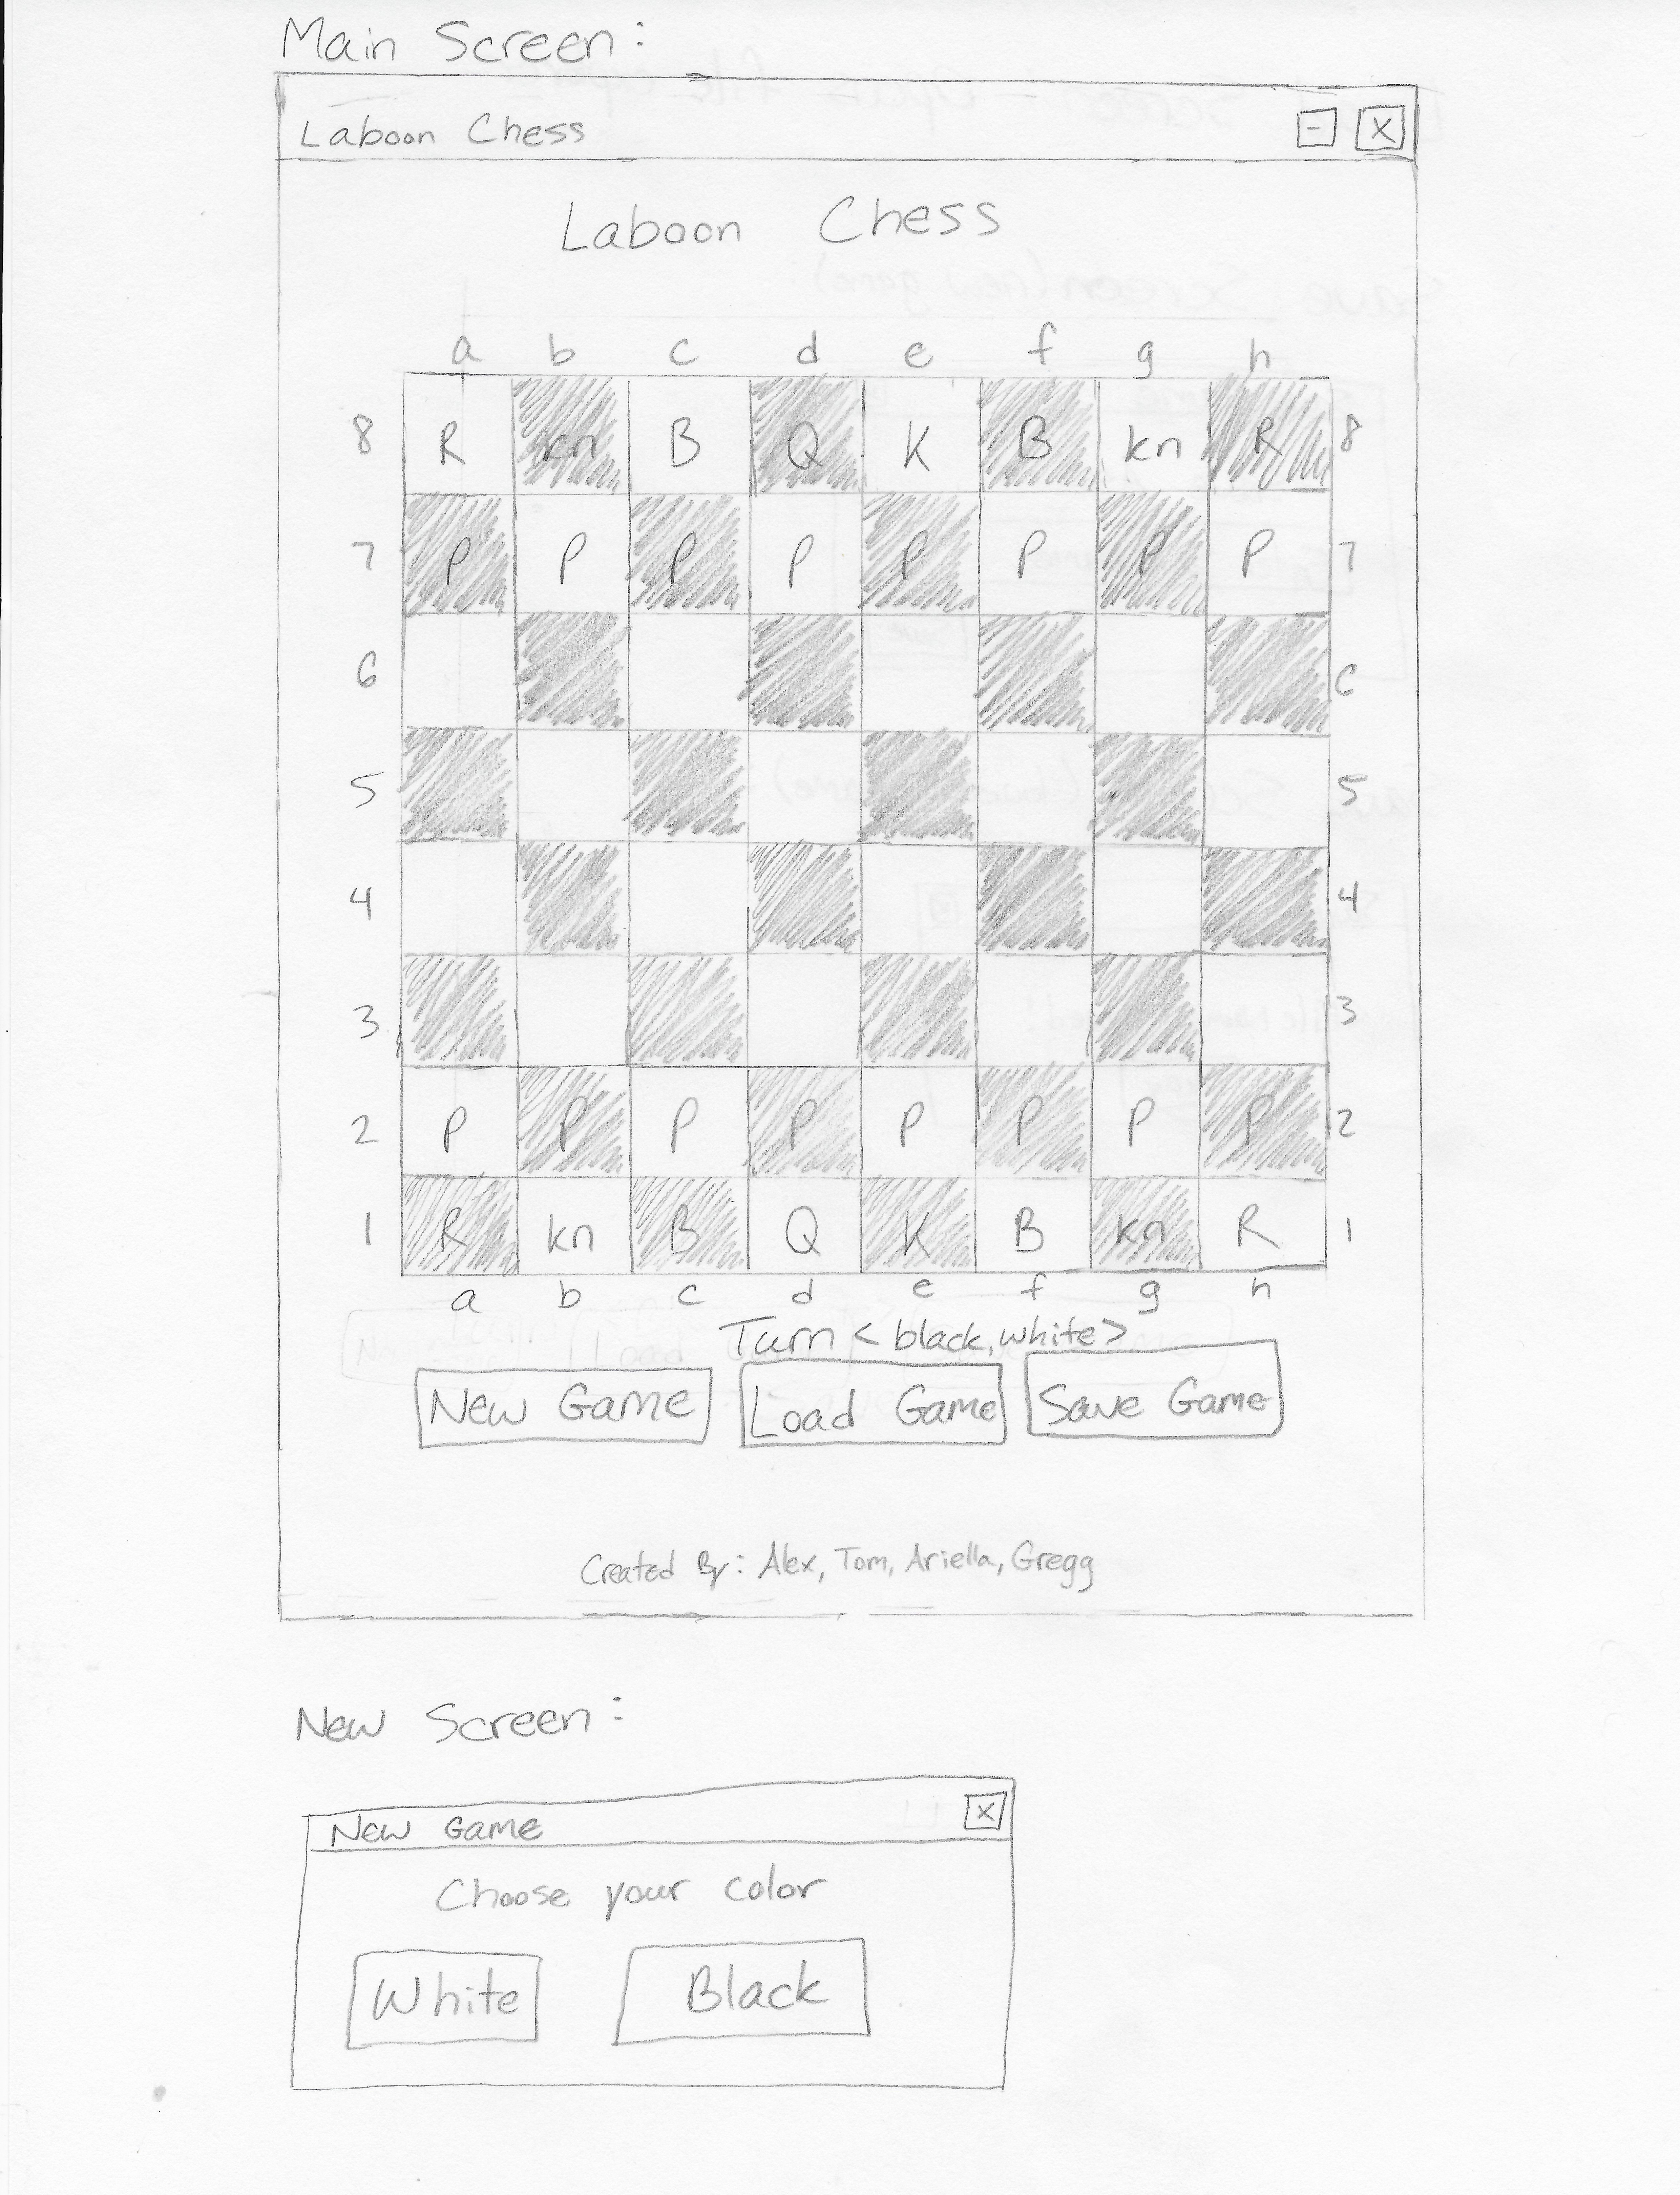 Main Screen:
Laboon Chess - X
Laboon Chess
a b c d e f g h
8 R kn B Q K B kn R 8
7 P P P P P P P P 7
6 6
5 5
4 4
3 3
2 P P P P P P P P 2
1 R kn B Q K B kn R 1
a b c d e f g h
Turn <black, white>
New Game Load Game Save Game
Created By: Alex, Tom, Ariella, Gregg
New Screen:
New Game X
Choose your color
White Black